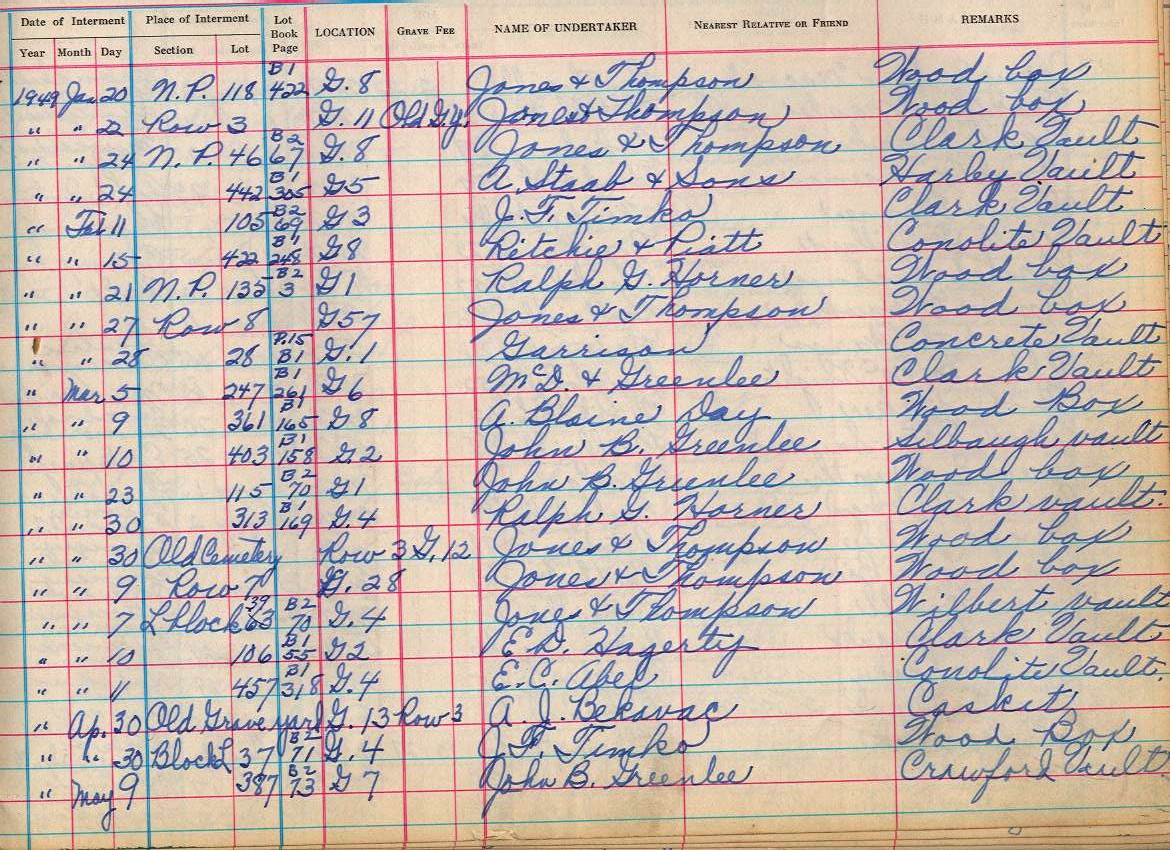 Date of Interment Place of Interment Lot Book Page LOCATION GRAVE FEE NAME OF UNDERTAKER NEAREST RELATIVE OR FRIEND REMARKS
Year Month Day Section Lot
1949 Jan 20 N.P. 118 B1 422 G. 8 Jones & Thompson Wood box
" " 22 Row 3 G. 11 Old G.y. Jones & Thompson Wood box
" " 24 N.P. 46 B2 67 G. 8 Jones & Thompson Clark Vault
" " 24 442 B1 305 G5 A. Staab & Sons Harley Vault
" Feb 11 105 B2 69 G 3 J. F. Timko Clark Vault
" " 15 422 B1 248 G8 Ritchie & Piatt Conolite Vault
" " 21 N.P. 135 B2 3 G1 Ralph G. Horner Wood box
" " 27 Row 8 G57 Jones & Thompson Wood box
" " 28 28 P.15 B1 G. 1 Garrison Concrete Vault
" Mar 5 247 B1 261 G 6 McD. & Greenlee Clark Vault
" " 9 361 B1 165 G 8 A. Blaine Day Wood Box
" " 10 403 B1 158 G. 2 John B. Greenlee Silbaugh vault
" " 23 115 B2 70 G1 John B. Greenlee Wood box
" " 30 313 B1 169 G. 4 Ralph G. Horner Clark vault.
" " 30 Old Cemetery Row 3 G. 12 Jones & Thompson Wood box
" " 9 Row 7 G. 28 Jones & Thompson Wood box
" " 7 L block 39 63 B2 70 G. 4 Jones & Thompson Wilbert vault
" " 10 106 B1 55 G2 E. D. Hagerty Clark Vault
" " 11 457 B1 318 G. 4 E. C. Abel Conolite Vault.
" Ap. 30 Old Grave yard G. 13 Row 3 A. J. Bekavac Caskit
" " 30 Block L 37 B2 71 G. 4 J. F. Timko Wood Box
" May 9 387 B2 73 G 7 John B. Greenlee Crawford Vault